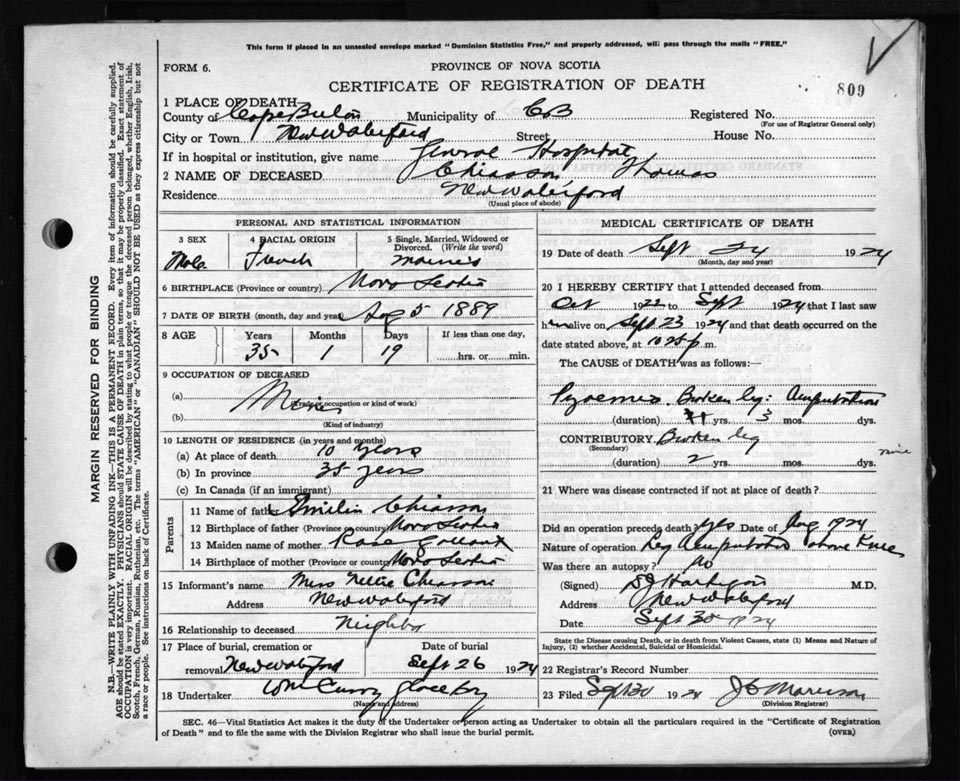 This form if placed in an unsealed envelope marked "Dominion Statistics Free," and properly addressed, will pass through the mails "FREE."
FORM 6.
PROVINCE OF NOVA SCOTIA
CERTIFICATE OF REGISTRATION OF DEATH
809
1 PLACE OF DEATH
County of Cape Breton Municipality of CB Registered No.
(For use of Registrar General only)
City or Town New Waterford Street House No.
If in hospital or institution, give name General Hospital
2 NAME OF DECEASED Chiasson Thomas
Residence New Waterford
(Usual place of abode)
PERSONAL AND STATISTICAL INFORMATION
3 SEX 4 RACIAL ORIGIN 5 Single, Married, Widowed or Divorced. (Write the word)
Male French Married
6 BIRTHPLACE (Province or country) Nova Scotia
7 DATE OF BIRTH (month, day and year) Aug 5 1889
8 AGE Years Months Days If less than one day,
35 1 19 hrs. or min.
9 OCCUPATION OF DECEASED
(a) Miner
(Trade or occupation or kind of work)
(b)
(Kind of industry)
10 LENGTH OF RESIDENCE (in years and months)
(a) At place of death 10 years
(b) In province 35 years
(c) In Canada (if an immigrant)
Parents
11 Name of father Chiasson
12 Birthplace of father (Province or country) Nova Scotia
13 Maiden name of mother Rose
14 Birthplace of mother (Province or country) Nova Scotia
15 Informant's name Miss Nellie Chiasson
Address New Waterford
16 Relationship to deceased Neighbor
17 Place of burial, cremation or removal Date of burial
New Waterford Sept 26 1924
18 Undertaker Wm Curry Glace Bay
(Name and address)
MEDICAL CERTIFICATE OF DEATH
19 Date of death Sept 24 1924
(Month, day and year)
20 I HEREBY CERTIFY that I attended deceased from
Oct 1922 to Sept 1924 that I last saw
him alive on Sept 23 1924 and that death occurred on
date stated above, at 10 25 p.m.
The CAUSE of DEATH was as follows:
Pyaemia. Broken leg: Amputation
(duration) yrs. 3 mos. dys.
CONTRIBUTORY Broken leg
(Secondary)
(duration) 2 yrs. mos. dys. mine
21 Where was disease contracted if not at place of death?
Did an operation precede death? Yes Date of Aug 1924
Nature of operation Leg Amputated above Knee
Was there an autopsy? No
(Signed) M.D.
Address New Waterford
Date Sept 30 1924
State the Disease causing Death, or in death from Violent Causes, state (1) Means and Nature of Injury, (2) whether Accidental, Suicidal or Homicidal.
22 Registrar's Record Number
23 Filed Sept 30 1924
(Division Registrar)
SEC. 46—Vital Statistics Act makes it the duty of the Undertaker or person acting as Undertaker to obtain all the particulars required in the "Certificate of Registration
of Death" and to file the same with the Division Registrar who shall issue the burial permit. (OVER)
MARGIN RESERVED FOR BINDING
N.B.—WRITE PLAINLY WITH UNFADING INK—THIS IS A PERMANENT RECORD. Every item of information should be carefully supplied.
AGE should be stated EXACTLY. PHYSICIANS should STATE CAUSE OF DEATH in plain terms, so that it may be properly classified. Exact statement of
OCCUPATION is very important. RACIAL ORIGIN will be described by stating to what people or tongue the deceased person belonged, whether English, Irish,
Scotch, French, German, Russian, Ruthenian, etc. The terms "AMERICAN" or "CANADIAN" SHOULD NOT BE USED as they express citizenship but not
a race or people. See instructions on back of Certificate.